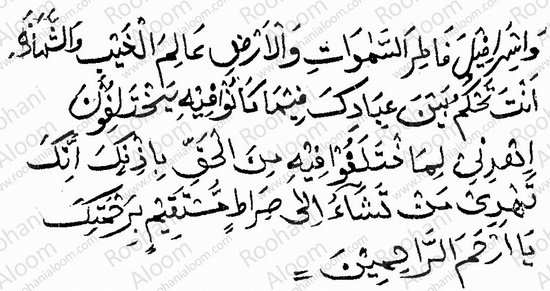 وَاِسْرَافِيْلَ فَاطِرَ السَّمٰوَاتِ وَالْاَرْضِ عَالِمَ الْغَيْبِ وَالشَّهَادَةِ
اَنْتَ تَحْكُمُ بَيْنَ عِبَادِكَ فِيْمَا كَانُوْا فِيْهِ يَخْتَلِفُوْنَ
اِهْدِنِيْ لِمَا اخْتَلَفُوْا فِيْهِ مِنَ الْحَقِّ بِاِذْنِكَ اِنَّكَ
تَهْدِيْ مَنْ تَشَاءُ اِلٰى صِرَاطٍ مُّسْتَقِيْمٍ بِرَحْمَتِكَ
يَا اَرْحَمَ الرَّاحِمِيْنَ =
Roohani Aloom
www.roohanialoom.com